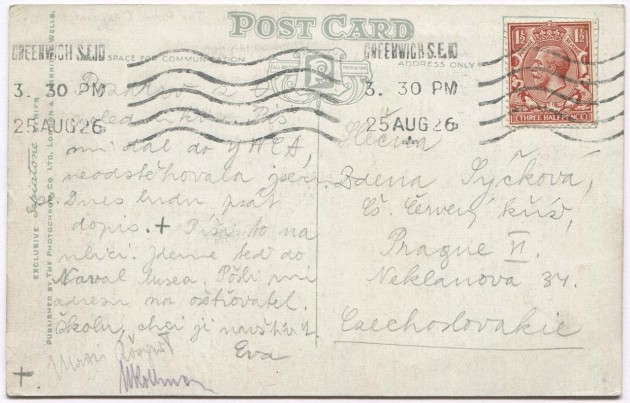 POST CARD
GREENWICH S.E.10
3. 30 PM
25 AUG 26
GREENWICH S.E.10
3. 30 PM
25 AUG 26
SPACE FOR COMMUNICATION
ADDRESS ONLY
1½ 1½
THREE HALFPENCE
EXCLUSIVE Sepiatone SERIES
PUBLISHED BY THE PHOTOCHROM CO. LTD., LONDON & TUNBRIDGE WELLS.
mi dal do YWCA,
neodstěhovala jsem
se. Dnes budu psát
dopis. + Píši to na
ulici. Jdeme teď do
Naval Musea. Pošli mi
adresu na ošetřovatel.
školu, chci ji navštívit.
Eva
+
Slečna
Zdena Sýčková,
Čs. Červený kříž,
Prague VI.
Neklanova 34.
Czechoslovakie